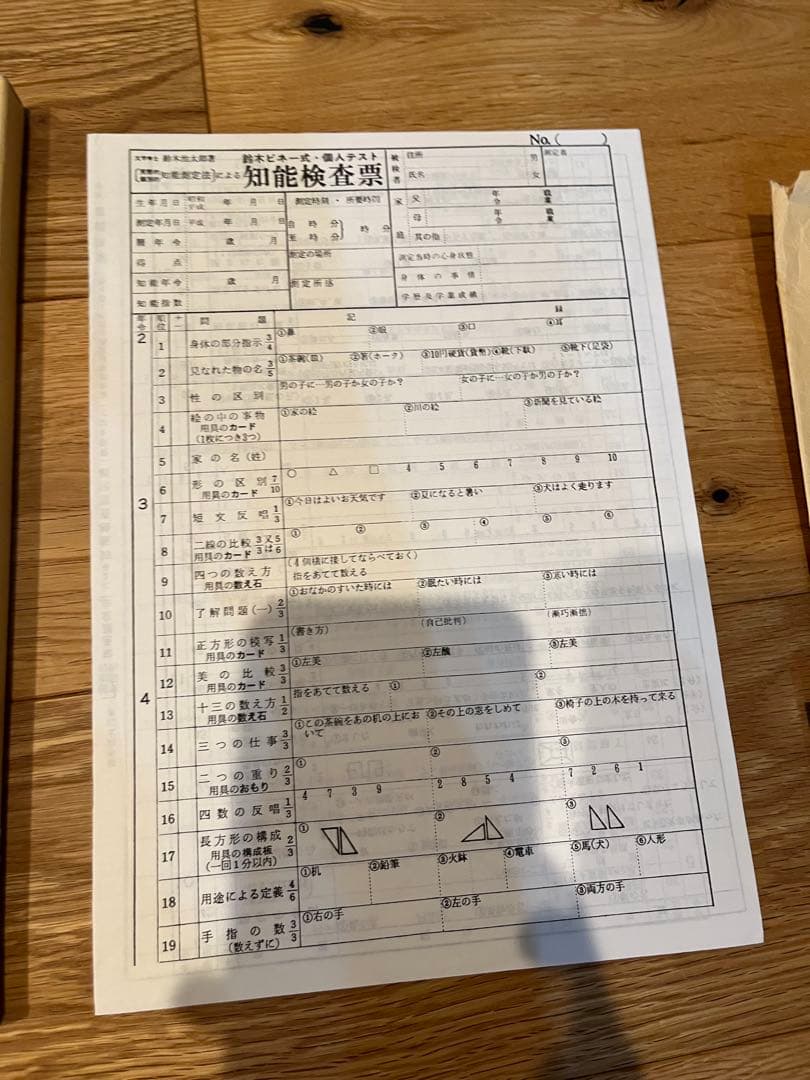 No. (　　)
文学士 鈴木治太郎著
鈴木ビネー式・個人テスト
知能測定法による 知能検査票
被検者 住所 男 測定者
氏名 女
生年月日 昭和 平成 年 月 日
測定時刻・所要時間
家庭 父 年令 職業
測定年月日 平成 年 月 日
自 時 分
至 時 分
時 分
母 年令 職業
暦年令 歳 月
其の他
得点
測定の場所
測定当時の心身状態
知能年令 歳 月
測定所感
身体の事情
知能指数
学歴及学業成績
年令 順位 ＋－ 問題 記録
2 1 身体の部分指示 3/4 ①鼻 ②眼 ③口 ④耳
2 見なれた物の名 3/5 ①茶碗(皿) ②箸(ホーク) ③10円硬貨(貨幣) ④靴(下駄) ⑤靴下(足袋)
3 性の区別 男の子に…男の子か女の子か? 女の子に…女の子か男の子か?
4 絵の中の事物 用具のカード (1枚につき3つ) ①家の絵 ②川の絵 ③新聞を見ている絵
5 家の名(姓)
6 形の区別 7/10 用具のカード ○ △ □ 4 5 6 7 8 9 10
3 7 短文反唱 1/3 ①今日はよいお天気です ②夏になると暑い ③犬はよく走ります
8 二線の比較 3/3 又は 5/6 用具のカード ① ② ③ ④ ⑤ ⑥
9 四つの数え方 用具の数え石 (4個横に接してならべておく) 指をあてて数える
10 了解問題(一) 2/3 ①おなかのすいた時には ②眠たい時には ③寒い時には
11 正方形の模写 1/3 用具のカード (書き方) (自己批判) (巧拙)
12 美の比較 3/3 用具のカード ①左美 ②左醜 ③左美
4 13 十三の数え方 1/2 用具の数え石 指をあてて数える ① ②
14 三つの仕事 3/3 ①この茶碗をあの机の上において ②その上の窓をしめて ③椅子の上の本を持って来る
15 二つの重り 2/3 用具のおもり ① ② ③
16 四数の反唱 1/3 4 7 3 9 2 8 5 4 7 2 6 1
17 長方形の構成 2/3 用具の構成板 (一回1分以内) ① ② ③
18 用途による定義 4/6 ①机 ②鉛筆 ③火鉢 ④電車 ⑤馬(犬) ⑥人形
19 手指の数 3/3 (数えずに) ①右の手 ②左の手 ③両方の手